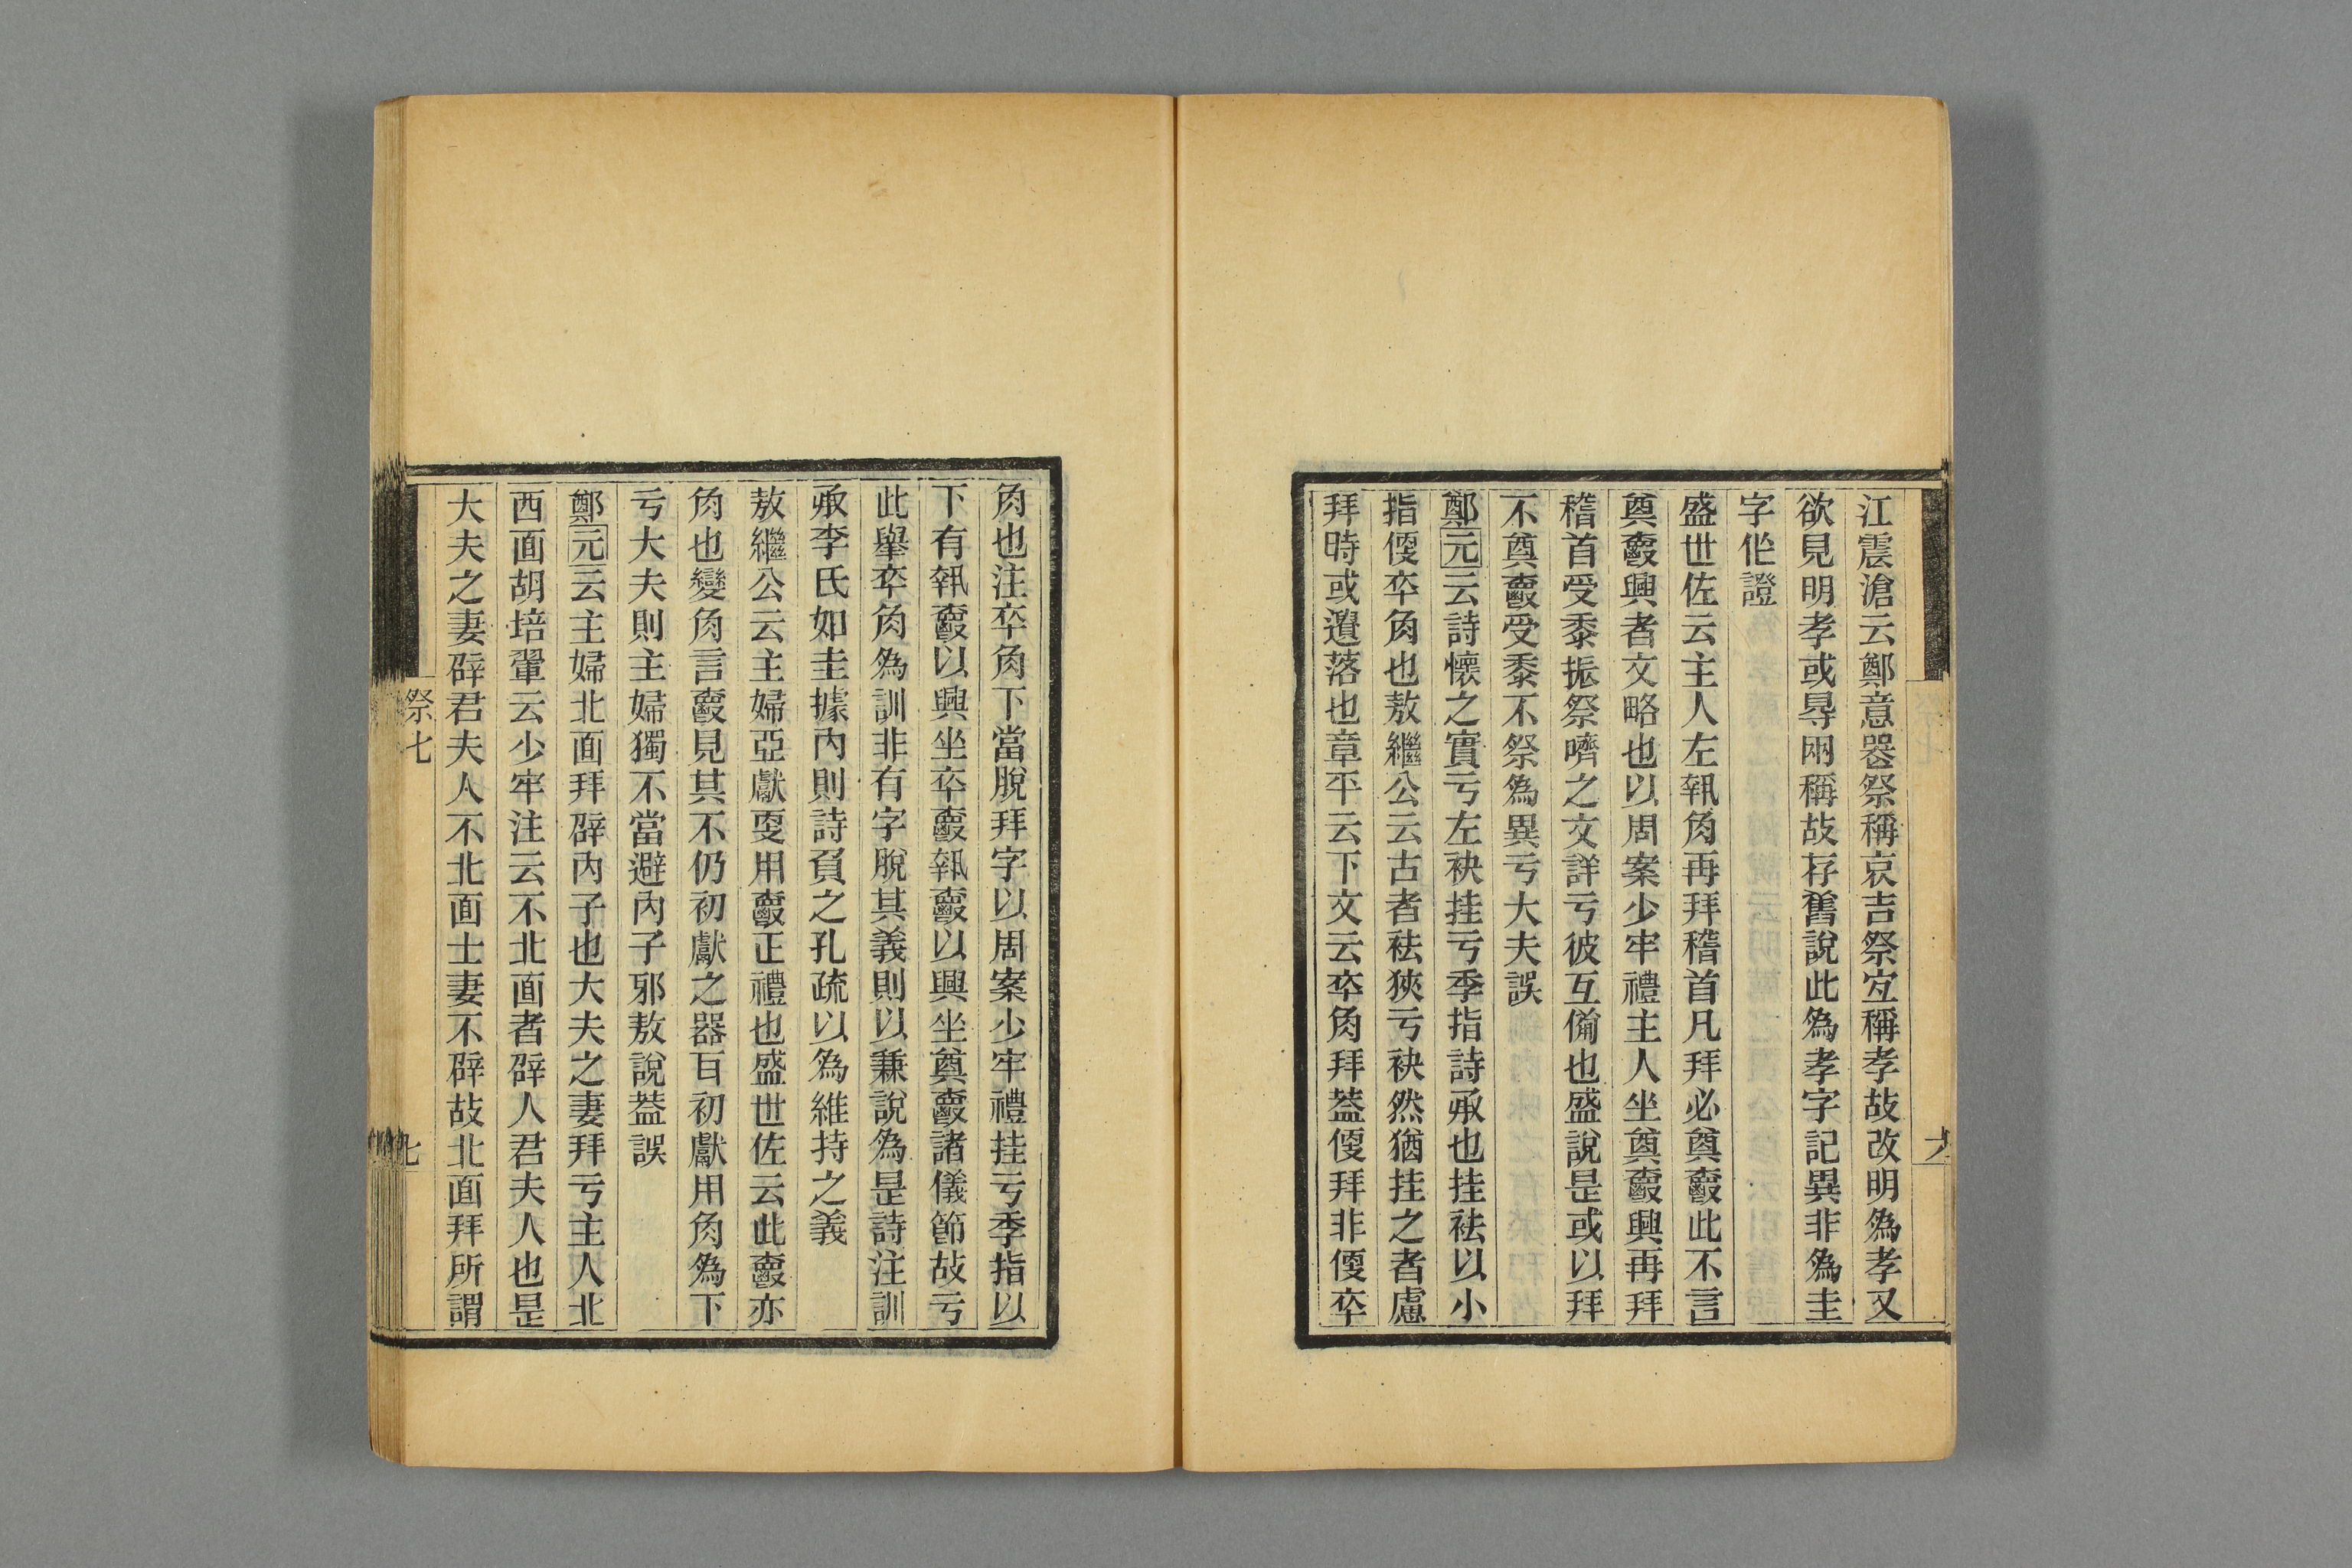 江震滄云鄭意器祭稱哀吉祭宐稱孝故改明爲孝又
欲見明孝或㝵㒳稱故存舊說此爲孝字記異非爲圭
字作證
盛世佐云主人左執角再拜稽首凡拜必奠爵此不言
奠爵興者文略也以周案少牢禮主人坐奠爵興再拜
稽首受黍振祭嚌之文詳亏彼互僃也盛說是或以拜
不奠爵受黍不祭爲異亏大夫誤
鄭元云詩懷之實亏左袂挂亏季指詩承也挂袪以小
指偠卒角也敖繼公云古者袪狹亏袂然猶挂之者慮
拜時或遺落也章平云下文云卒角拜葢偠拜非偠卒
角也注卒角下當脫拜字以周案少牢禮挂亏季指以
下有執爵以興坐卒爵執爵以興坐奠爵諸儀節故亏
此舉卒角爲訓非有字脫其義則以兼說爲是詩注訓
承李氏如圭據內則詩負之孔疏以爲維持之義
敖繼公云主婦亞獻㪅用爵正禮也盛世佐云此爵亦
角也變角言爵見其不仍初獻之器百初獻用角爲下
亏大夫則主婦獨不當避內子邪敖說葢誤
鄭元云主婦北面拜辟內子也大夫之妻拜亏主人北
西面胡培翬云少牢注云不北面者辟人君夫人也是
大夫之妻辟君夫人不北面士妻不辟故北面拜所謂
祭七
七